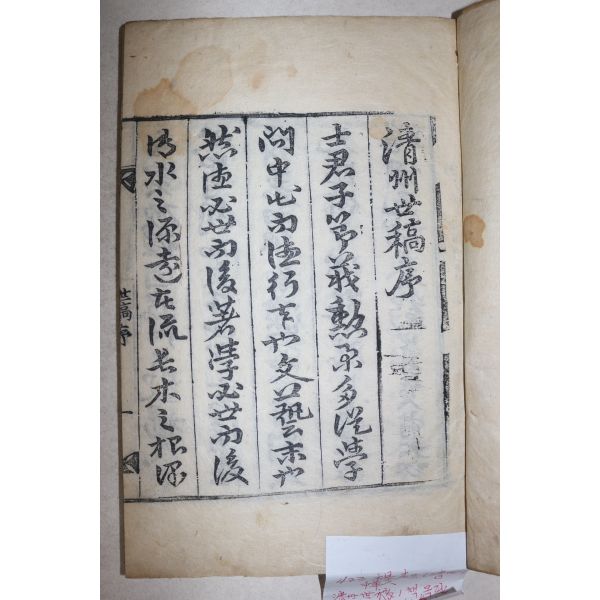 清州世稿序
士君子節義勲名多從學
問中出而德行本也文藝末也
然德必世而後著學必世而後
水之源遠者流長木之根深
世稿序
一